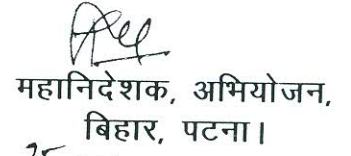 महानिदेशक, अभियोजन,
बिहार, पटना।